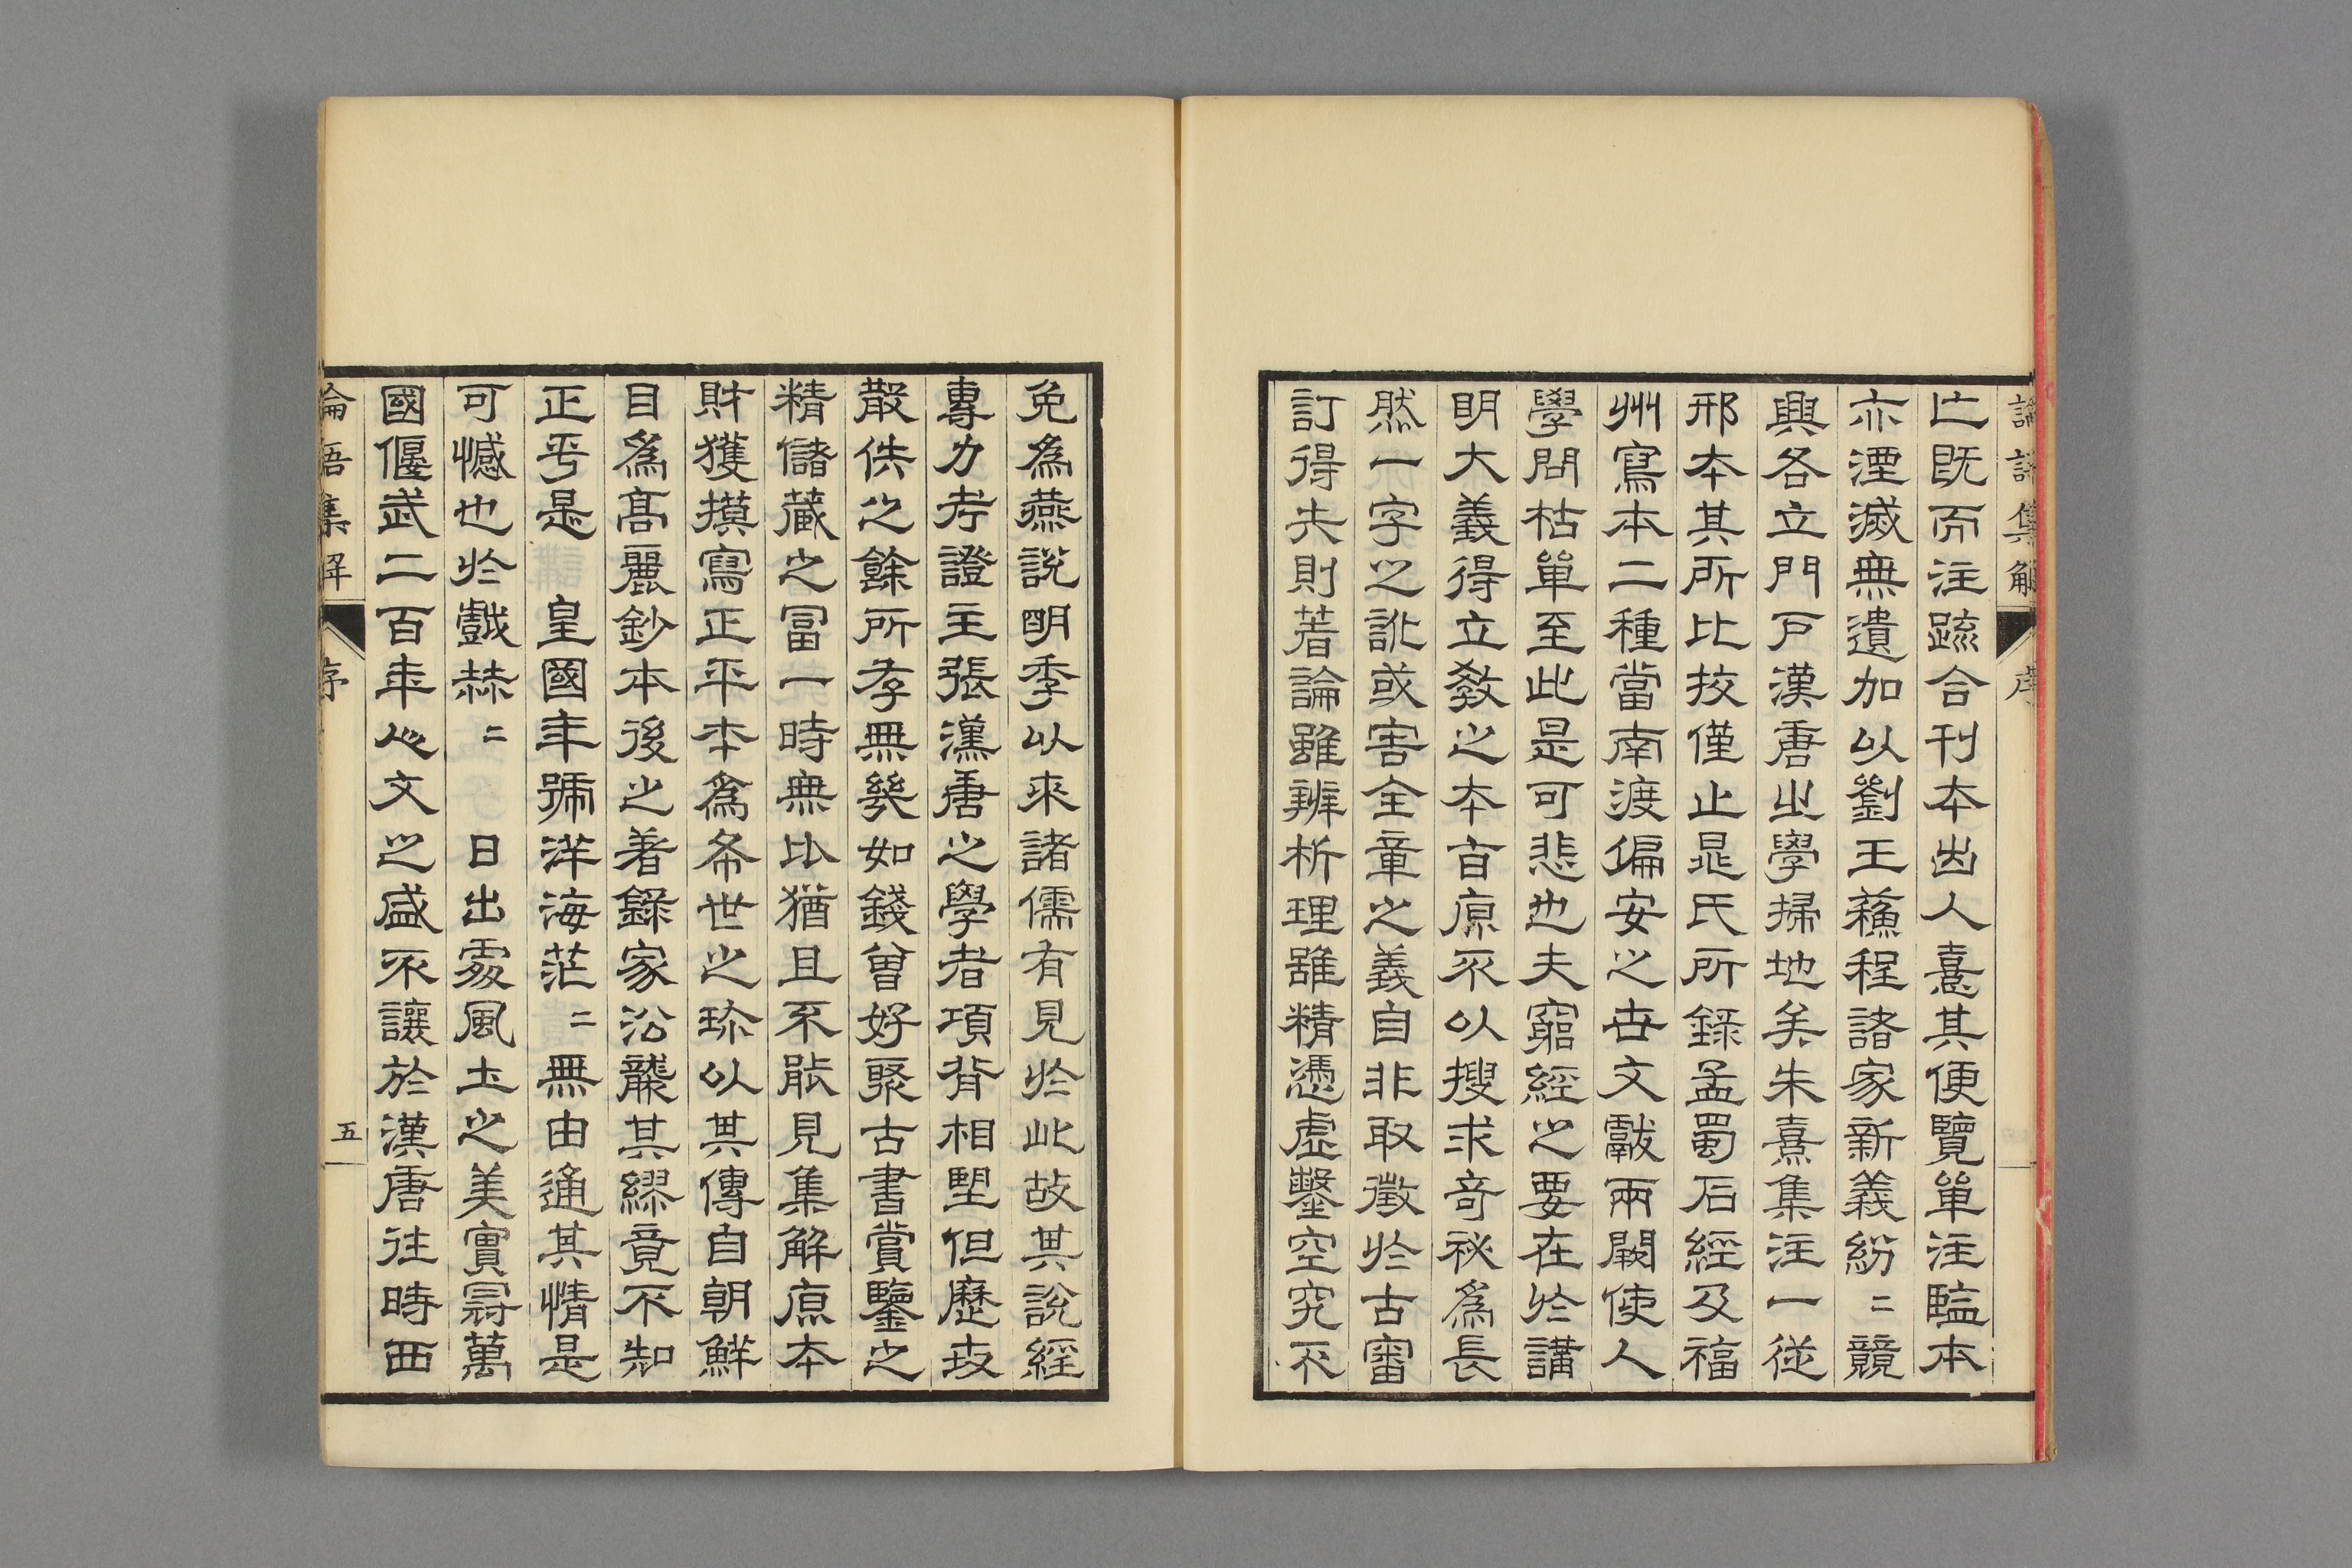 論語集解
序
亡既而注疏合刊本出人憙其便覽單注監本
亦湮滅無遺加以劉王蘓程諸家新義紛〻競
興各立門戸漢唐之學掃地矣朱熹集注一從
邢本其所比挍僅止晁氏所錄孟蜀石經及福
州寫本二種當南渡偏安之世文獻兩闕使人
學問枯單至此是可悲也夫窮經之要在於講
明大義得立敎之本旨原不以搜求奇祕爲長
然一字之訛或害全章之義自非取徵於古審
訂得失則著論雖辨析理雖精憑虛鑿空究不
免爲燕說明季以來諸儒有見於此故其說經
專力考證主張漢唐之學者項背相望但歷世
散佚之餘所存無幾如錢曾好聚古書賞鑒之
精儲藏之冨一時無比猶且不能見集解原本
財獲摸寫正平本爲希世之珎以其傳自朝鮮
目爲髙麗鈔本後之著錄家沿襲其繆竟不知
正平是　皇國年號洋海茫〻無由通其情是
可憾也於戲赫〻　日出處風土之美實冠萬
國偃武二百年人文之盛不讓於漢唐往時西
論語集解
序
五